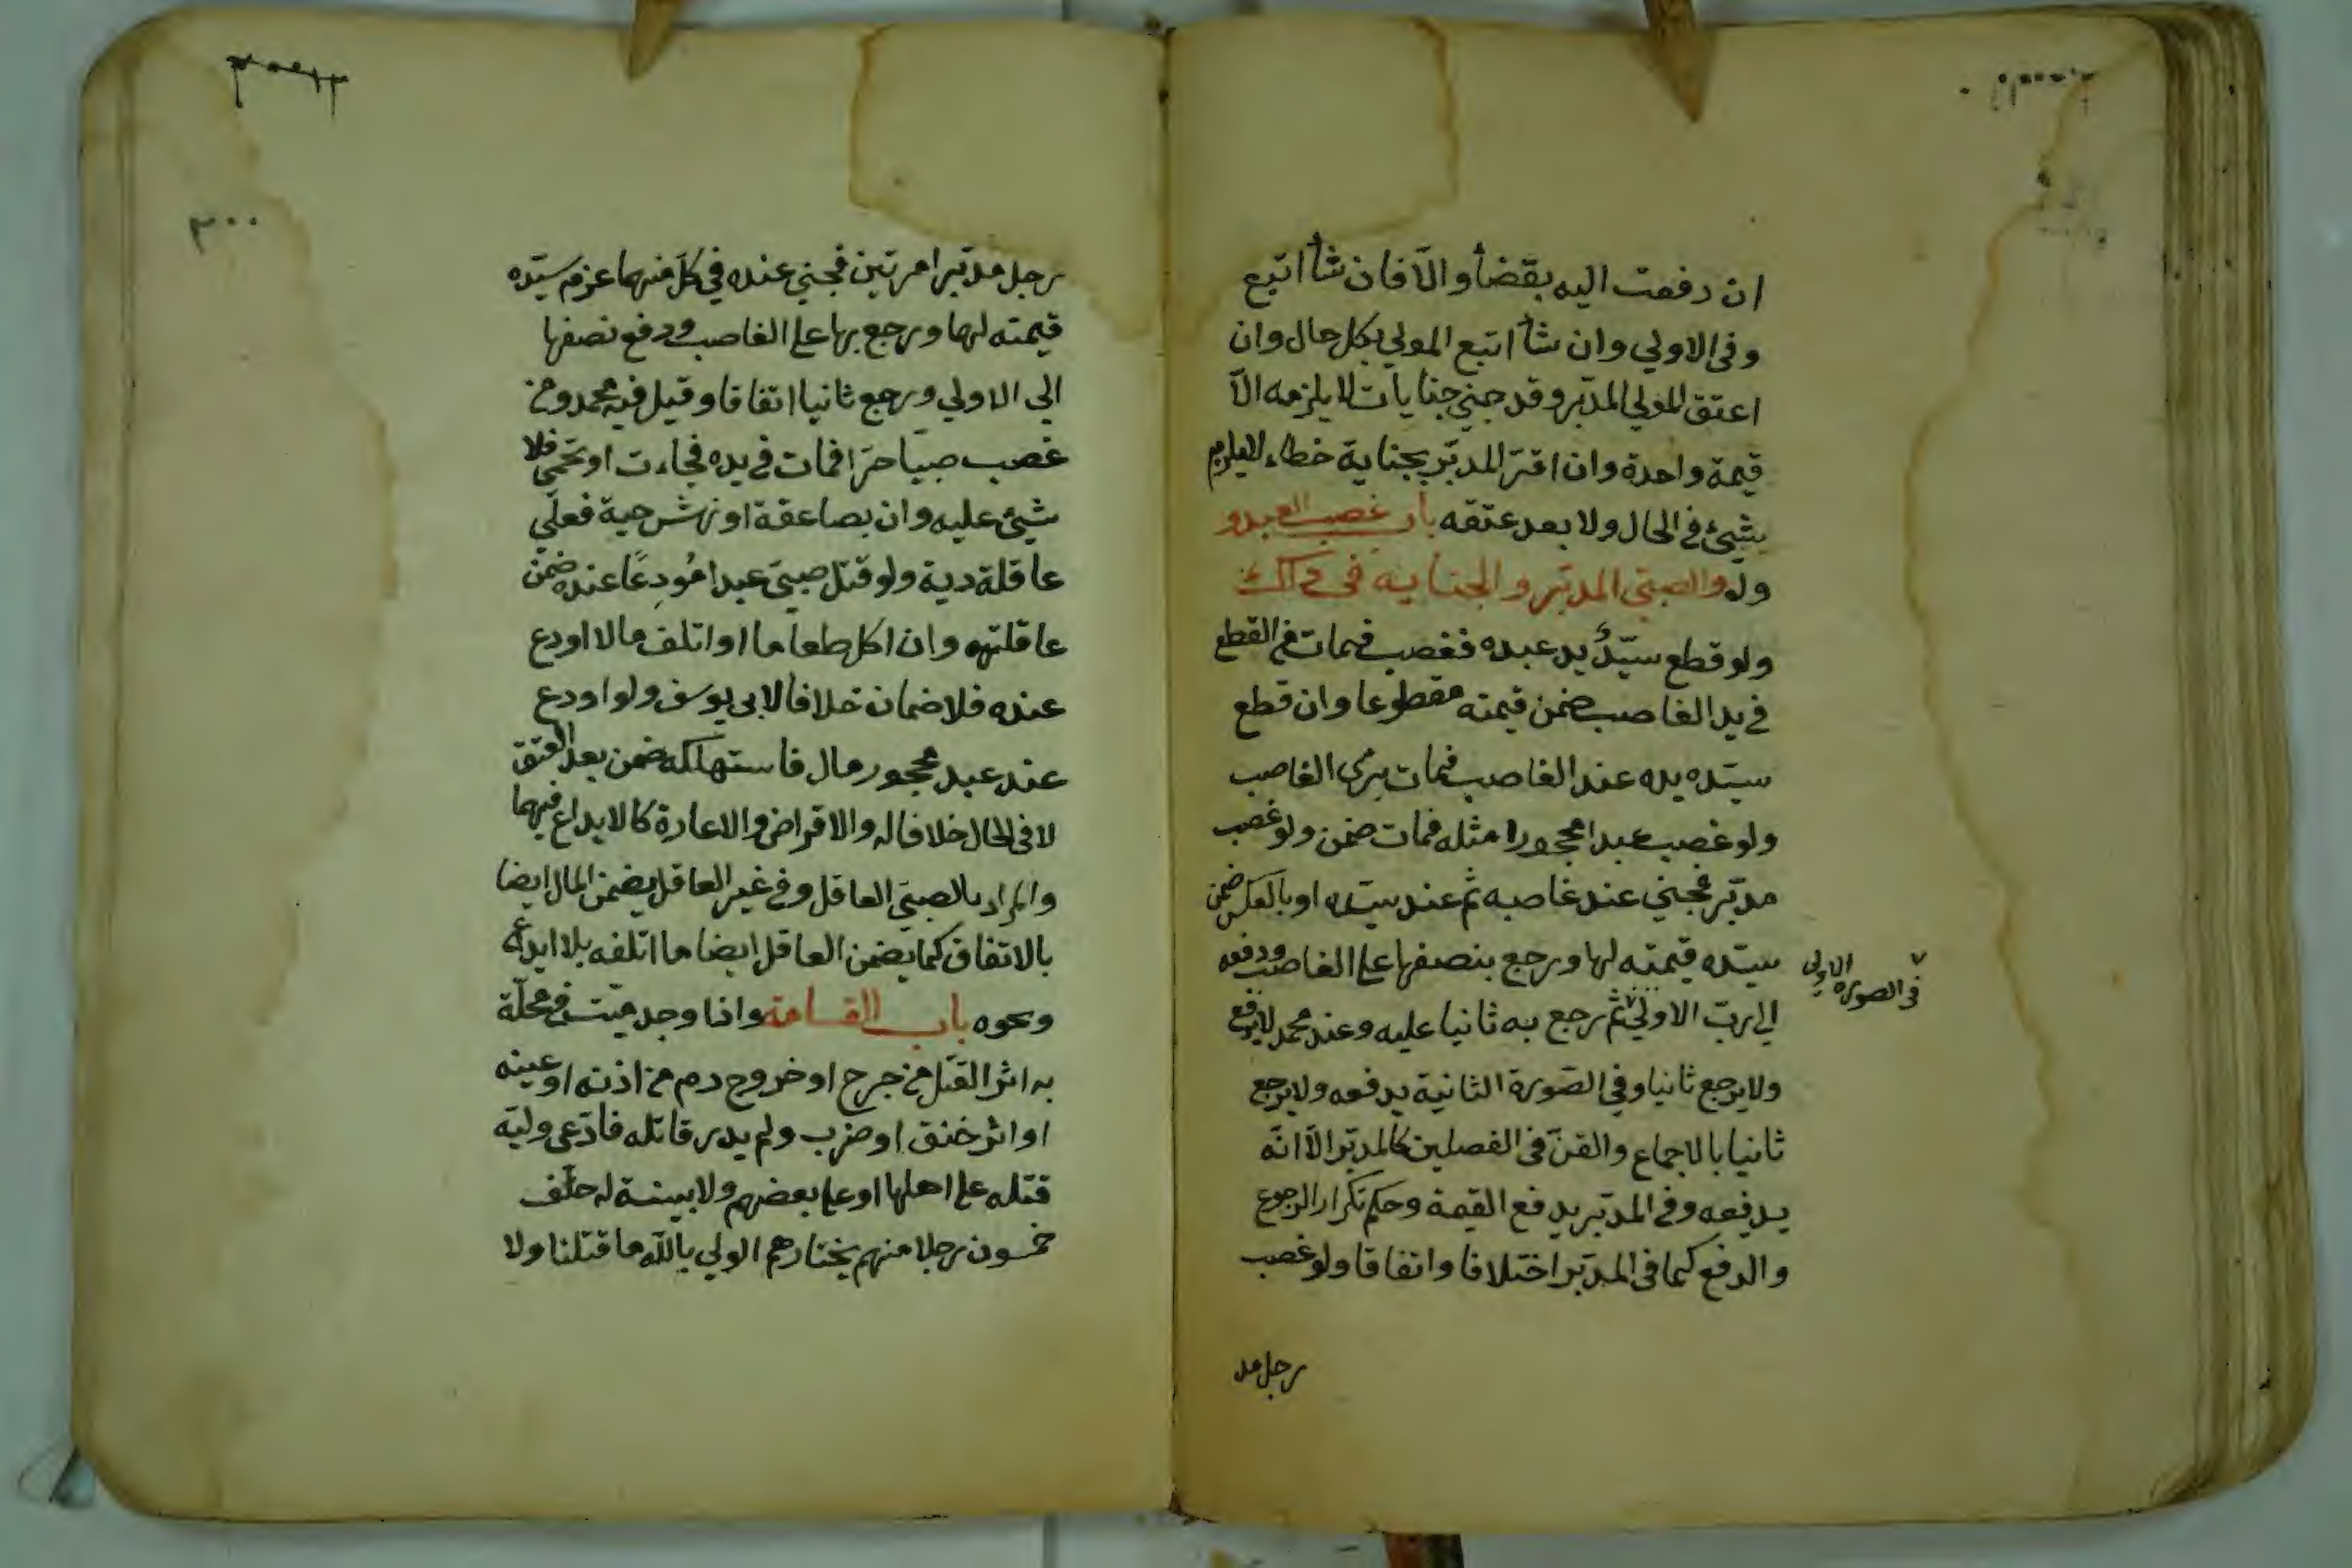 ان دفعت اليه بقضأ والّا فان شأ اتبع
وفى الاولي وان شأ اتبع المولي بكل حال وان
اعتق المولي المدبّر وقد جني جنايات لا يلزمه الّا
قيمة واحدة وان اقرّ المدبّر بجناية خطاء لا يلزم
شيئ فى الحال ولا بعد عتقه باب غصب العبد و
ولد والصبيّ المدبّر والجناية فى
ولو قطع سيّدُ يد عبده فغصب فمات من القطع
في يد الغاصب ضمن قيمته مقطوعا وان قطع
سيّده يده عند الغاصب فمات برئ الغاصب
ولو غصب عبدا محجورا مثله فمات ضمن ولو غصب
مدبّر فجني عند غاصبه ثم عند سيّده او بالعكس ضمن
سيّده قيمته لها ورجع بنصفها على الغاصب ودفعه
في الصورة الاولى
الي ربّ الاولي ثم رجع به ثانيا عليه وعند محمد لا يدفع
ولا يرجع ثانيا وفي الصّورة الثانية يدفعه ولا يرجع
ثانيا بالاجماع والقنّ فى الفصلين كالمدبّر الّا انّه
يدفعه وفي المدبّر يدفع القيمة وحكم تكرار الرجوع
والدفع كما فى المدبّر اختلافا واتفاقا ولو غصب
رجل مد
٣٠٠
رجل مدبّرا مرتين فجني عنده في كلّ منهما غرم سيّده
قيمته لهما ورجع بها على الغاصب ودفع نصفها
الي الاولي ورجع ثانيا اتفاقا وقيل فيه محمد ومن
غصب صبيّا حرّا فمات في يده فجاءت او بحمّى فلا
شيئ عليه وان بصاعقة او نهش حية فعلي
عاقلة دية ولو قتل صبيّ عبدا مُودعًا عنده ضمن
عاقلته وان اكل طعاما او اتلف مالا اودع
عنده فلا ضمان خلافا لابى يوسف ولو اودع
عند عبد محجور مال فاستهلكه ضمن بعد العتق
لا فى الحال خلافا له والاقراض والاعارة كالايداع فيهما
والمراد بالصبيّ العاقل وفي غير العاقل يضمن المال ايضا
بالاتفاق كما يضمن العاقل ايضا ما اتلفه بلا ايداع
ونحوه باب القسامة واذا وجد ميّت في محلّة
به اثر القتل من جرح او خروج دم من اذنه او عينه
او اثر خنق او ضرب ولم يدر قاتله فادّعى وليّه
قتله على اهلها او على بعضهم ولا بينة له حلّف
خمسون رجلا منهم يختارهم الولي بالله ما قتلنا ولا